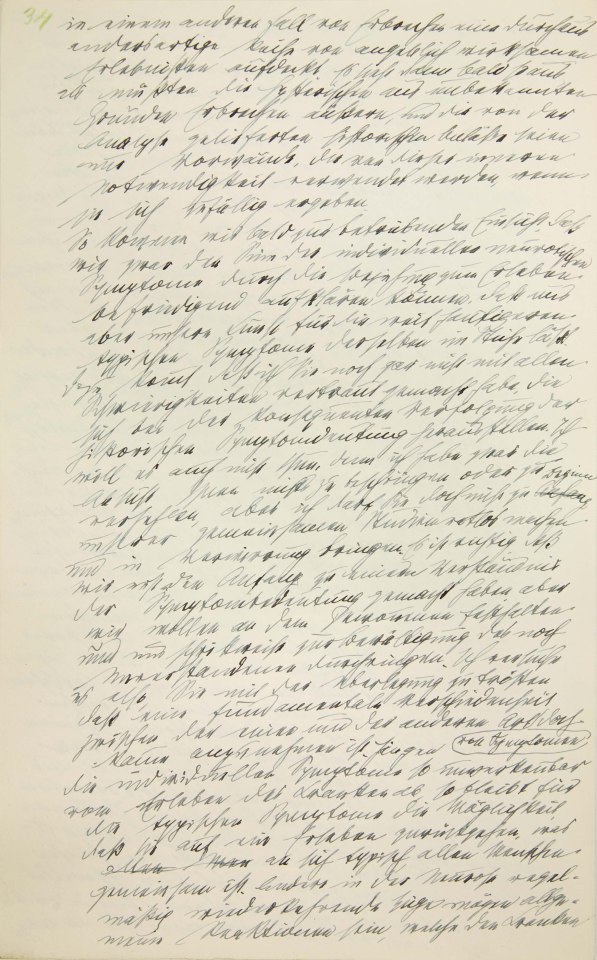 34
in einem anderen Fall von Erbrechen eine durchaus
andersartige Reihe von angeblich wirksamen
Erlebnissen aufdeckt. Es sieht dann bald so aus
als müßten die Hysterischen aus unbekannten
Gründen Erbrechen äußern, und die von der
Analyse gelieferten historischen Anläße seien
nur Vorwände, die von dieser inneren
Notwendigkeit verwendet werden, wenn
sie sich zufällig ergeben
So kommen wir bald zur betrübenden Einsicht, daß
wir zwar den Sinn der individuellen neurotischen
Symptome durch die Beziehung zum Erleben
befriedigend aufklären können, daß uns
aber unsere Kunst für die weit häufigeren
typischen Symptome derselben im Stiche läßt.
Dazu kommt, daß ich Sie noch gar nicht mit allen
Schwierigkeiten vertraut gemacht habe, die
sich bei der konsequenten Verfolgung der
historischen Symptomdeutung herausstellen. Ich
will es auch nicht thun, denn ich habe zwar die
Absicht Ihnen nichts zu beschönigen oder zu
verhehlen, aber ich darf Sie doch nicht zu Beginn
unserer gemeinsamen Studien ratlos machen
und in Verwirrung bringen. Es ist richtig, daß
wir erst den Anfang zu einem Verständnis
der Symptombedeutung gemacht haben, aber
wir wollen an dem Gewonnenen festhalten
und uns schrittweise zur Bewältigung des noch
Unverstandenen durchringen. Ich versuche
es also, Sie mit der Überlegung zu trösten
daß eine fundamentale Verschiedenheit
zwischen der einen und der anderen Art doch
kaum anzunehmen ist. Hängen (von Symptomen)
die individuellen Symptome so unverkennbar
vom Erleben des Kranken ab, so bleibt für
die typischen Symptome die Möglichkeit,
daß sie auf ein Erleben zurückgehen, was
an sich typisch allen Menschen
gemeinsam ist. Andere in der Neurose regel-
mäßig wiederkehrende Züge mögen allge-
meine Reaktionen sein, welche den Kranken